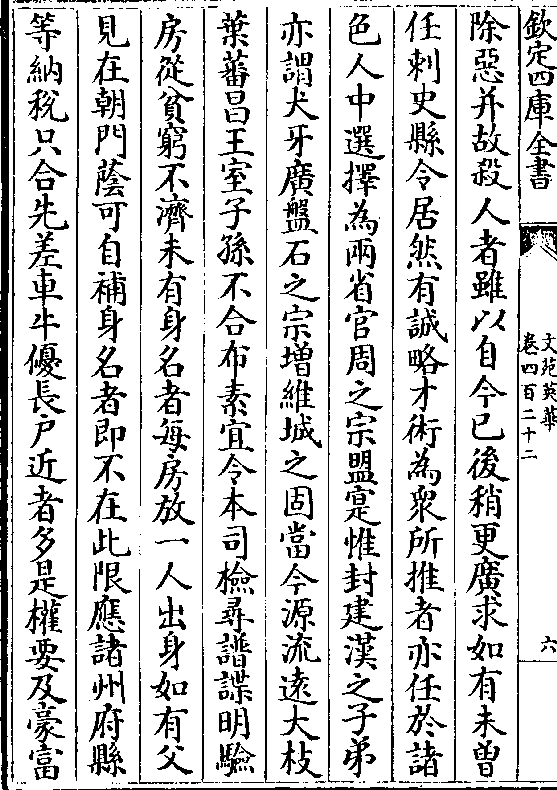 欽定四庫全書
文苑英華
卷四百二十二
六
除惡并故殺人者雖以自今已後稍更廣求如有未曽
任刺史縣令居然有誠略才術為衆所推者亦任於諸
色人中選擇為兩省官周之宗盟寔惟封建漢之子弟
亦謂犬牙廣盤石之宗増維城之固當今源流逺大枝
葉蕃昌王室子孫不合布素宜令本司檢尋譜諜明驗
房從貧窮不濟未有身名者每房放一人出身如有父
見在朝門蔭可自補身名者即不在此限應諸州府縣
等納稅只合先差車牛優長戸近者多是權要及豪富